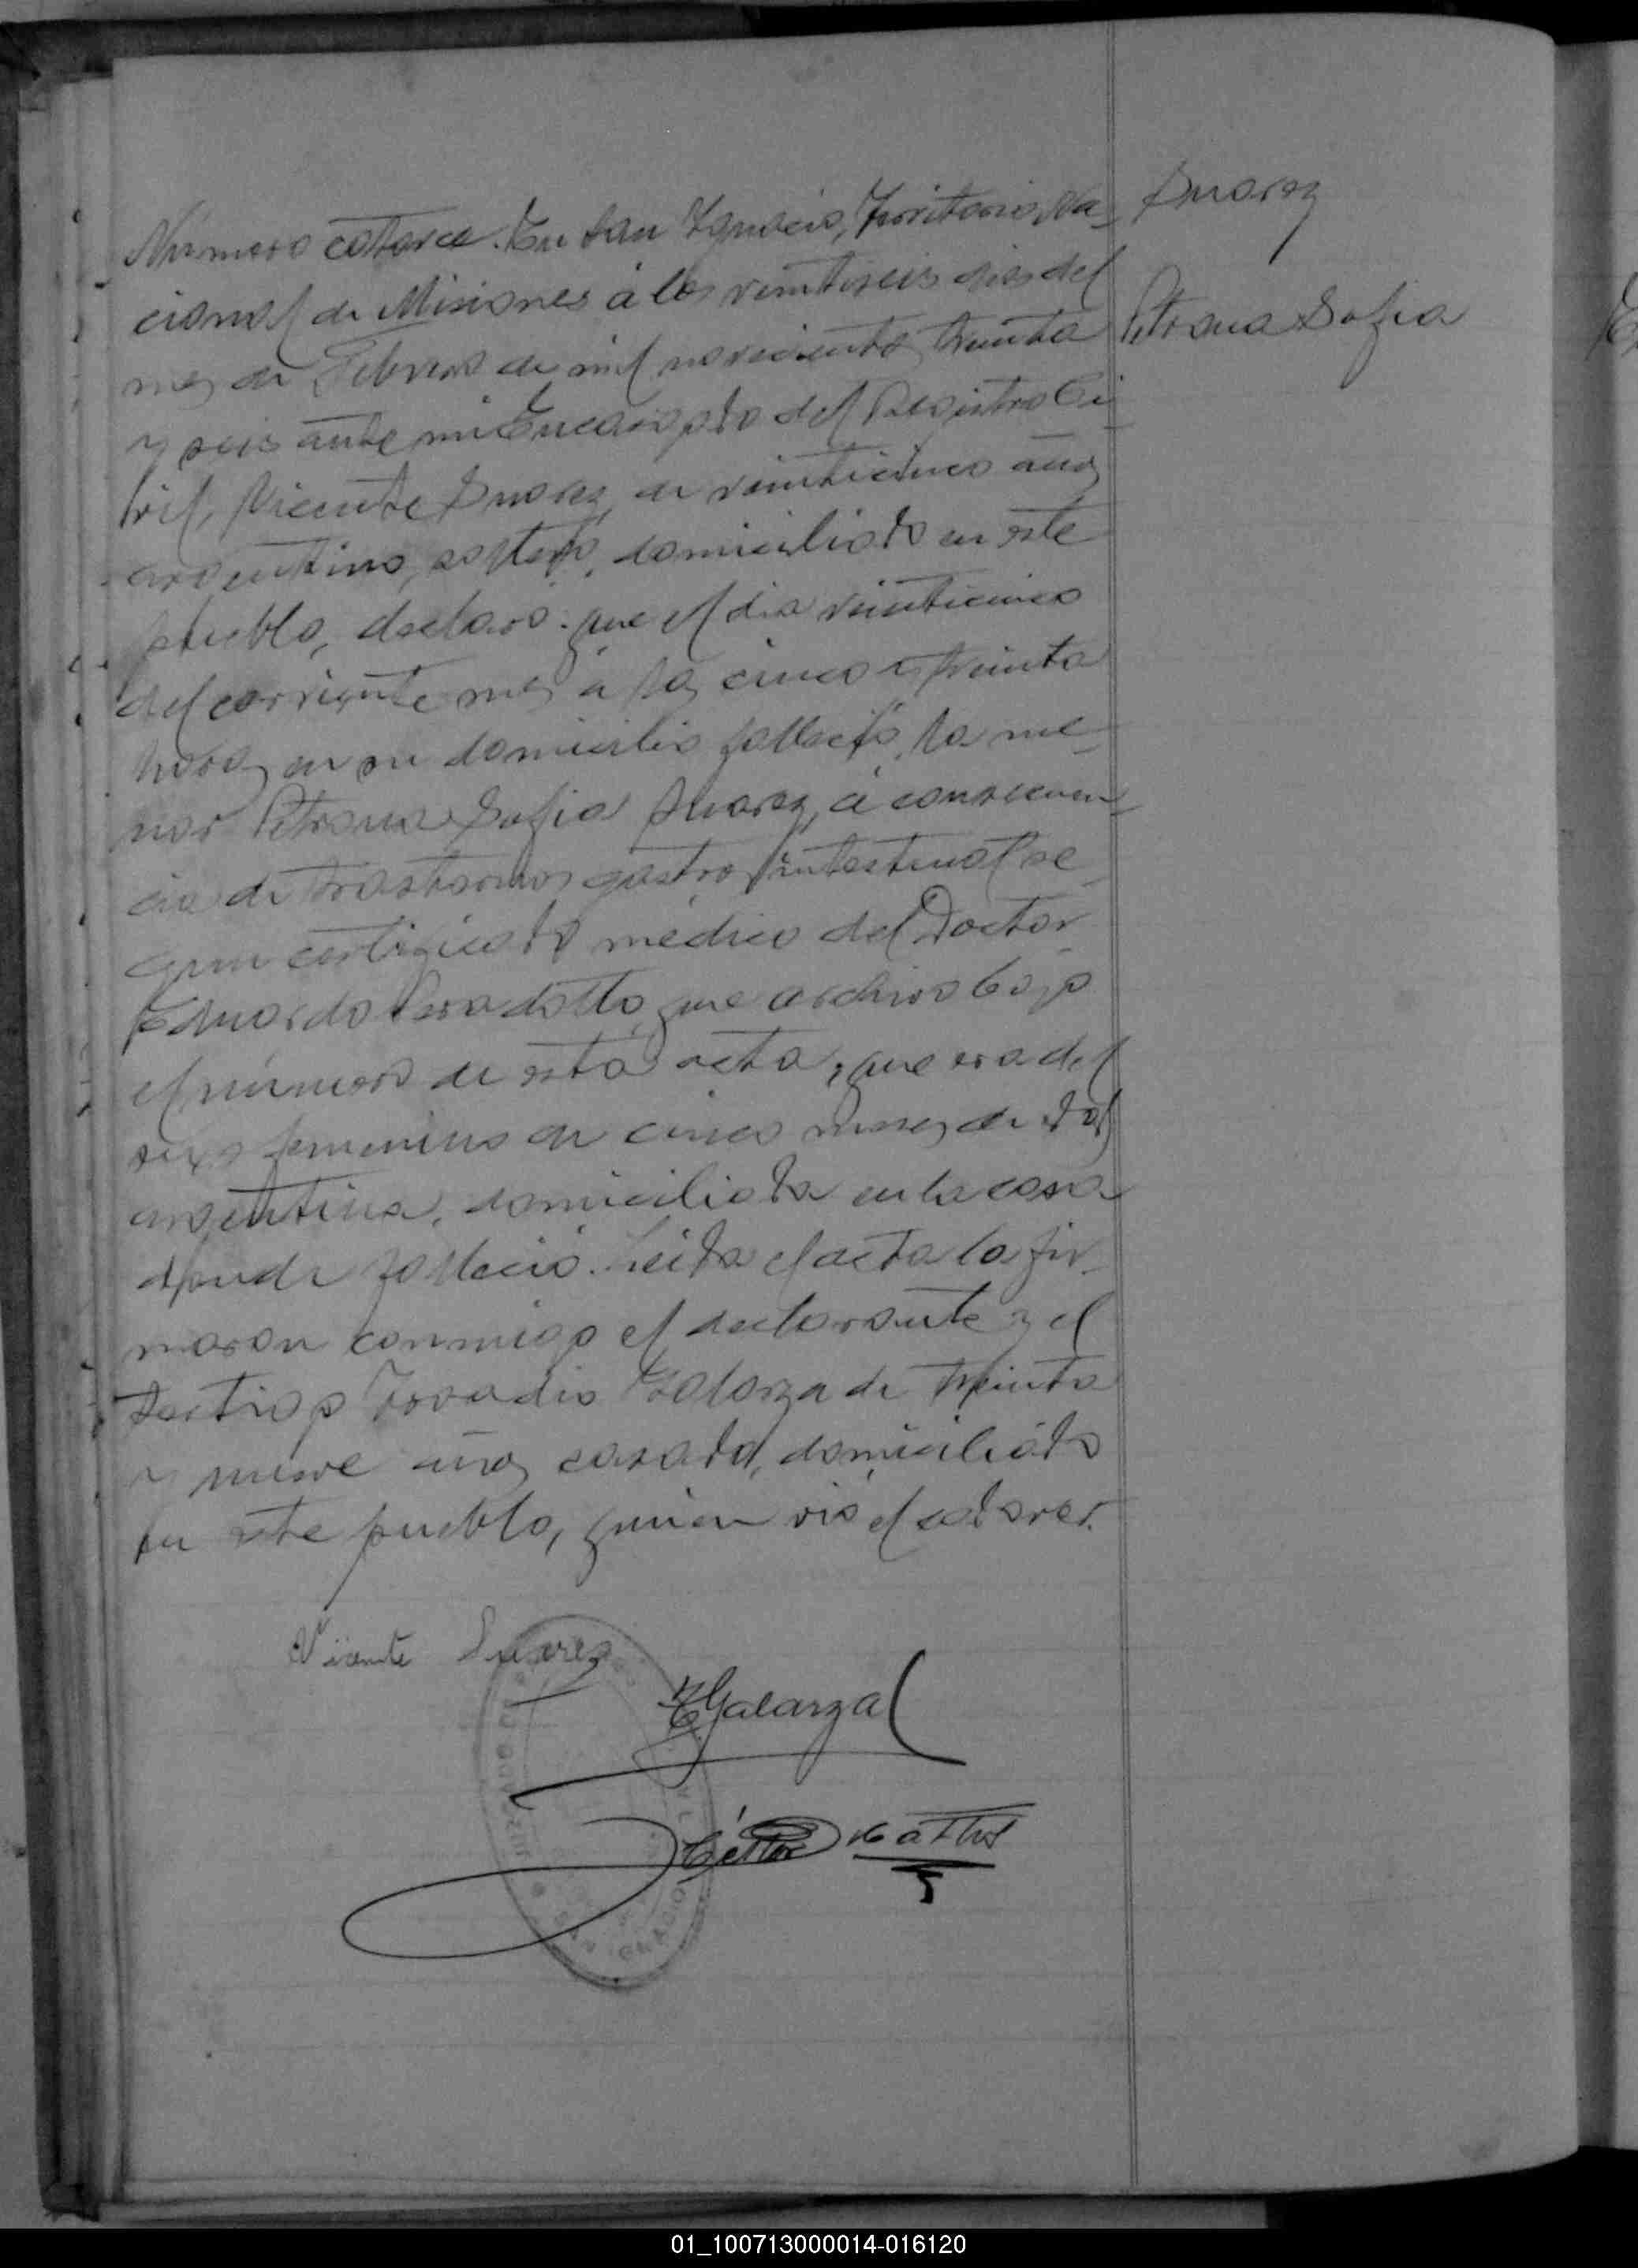 Número catorce. En San Ygnacio, Territorio Na-
cional de Misiones á los veintiseis dias del
mes de Febrero de mil novecientos treinta
y seis ante mi Encargado del Registro Ci-
vil, Vicente Suarez, de veinticinco años
argentino, soltero, domiciliado en este
pueblo, declaró: que el dia veinticinco
del corriente mes a las cinco y treinta
horas en su domicilio falleció la me-
nor Petrona Sofia Suarez, á consecuen-
cia de trastornos gastro intestinal se-
gun certificado médico del Doctor
Eduardo que archivo bajo
el número de esta acta, que era del
sexo femenino de cinco meses de edad
argentina, domiciliada en la casa
donde falleció. Leida el acta la fir-
maron conmigo el declarante y el
testigo Galarza de treinta
y nueve años casado, domiciliado
en este pueblo, quien vió el cadaver.
Suarez
Petrona Sofia
Vicente Suarez
Galarza
Héctor
SAN IGNACIO
01_100713000014-016120